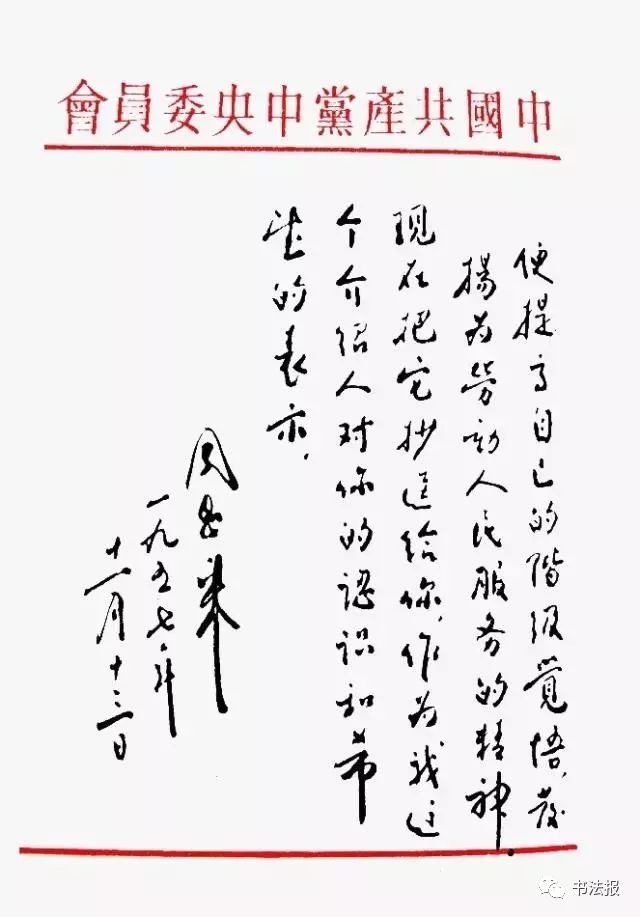 中國共產黨中央委員會
便提高自己的階級覺悟,發
揚为勞動人民服务的精神。
現在把它抄送给你,作为我这
个介绍人对你的認识和希
望的表示,
周恩来
一九五七年
十一月十三日
书法报